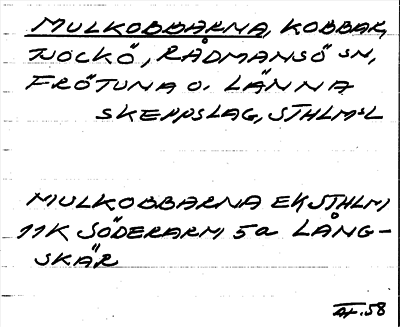 MULKOBBARNA, KOBBAR,
TJOCKÖ, RÅDMANSÖ SN,
FRÖTUNA O. LÄNNA
SKEPPSLAG, STHLMSL
MULKOBBARNA EK STHLM
11K SÖDERARM 5a LÅNG-
SKÄR
.58